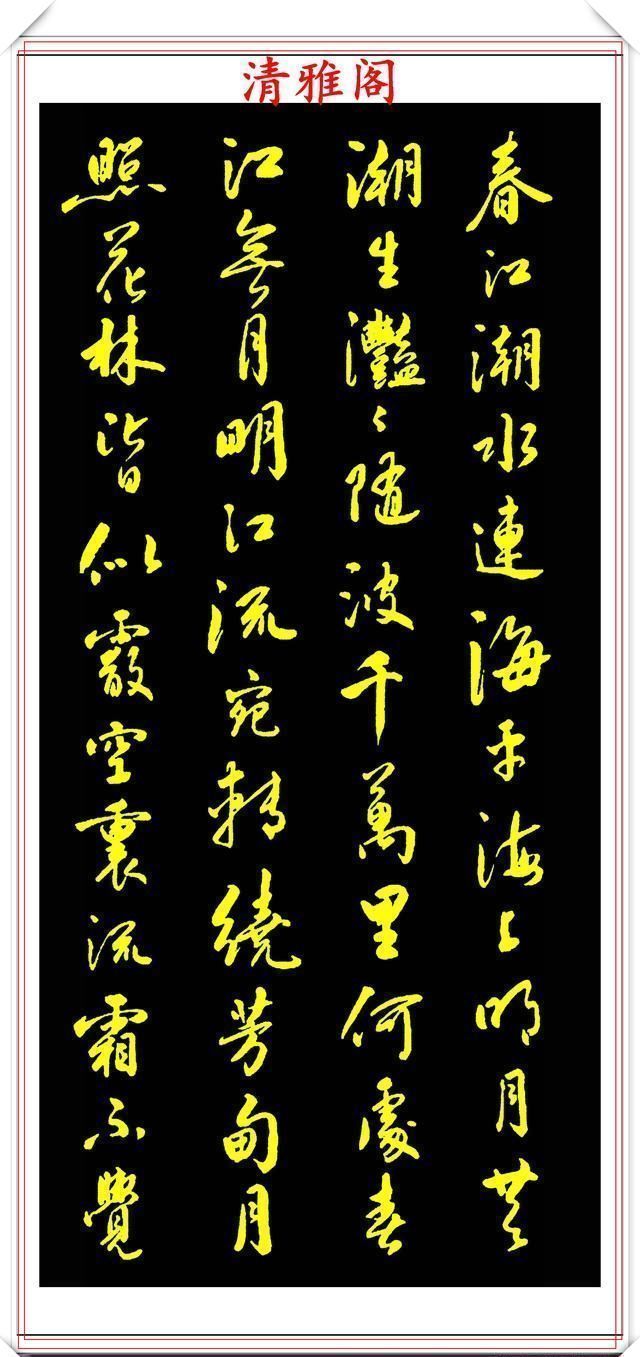 清雅阁
春江潮水連海平海上明月共
潮生灩々随波千萬里何處春
江無月明江流宛轉繞芳甸月
照花林皆似霰空裏流霜不覺